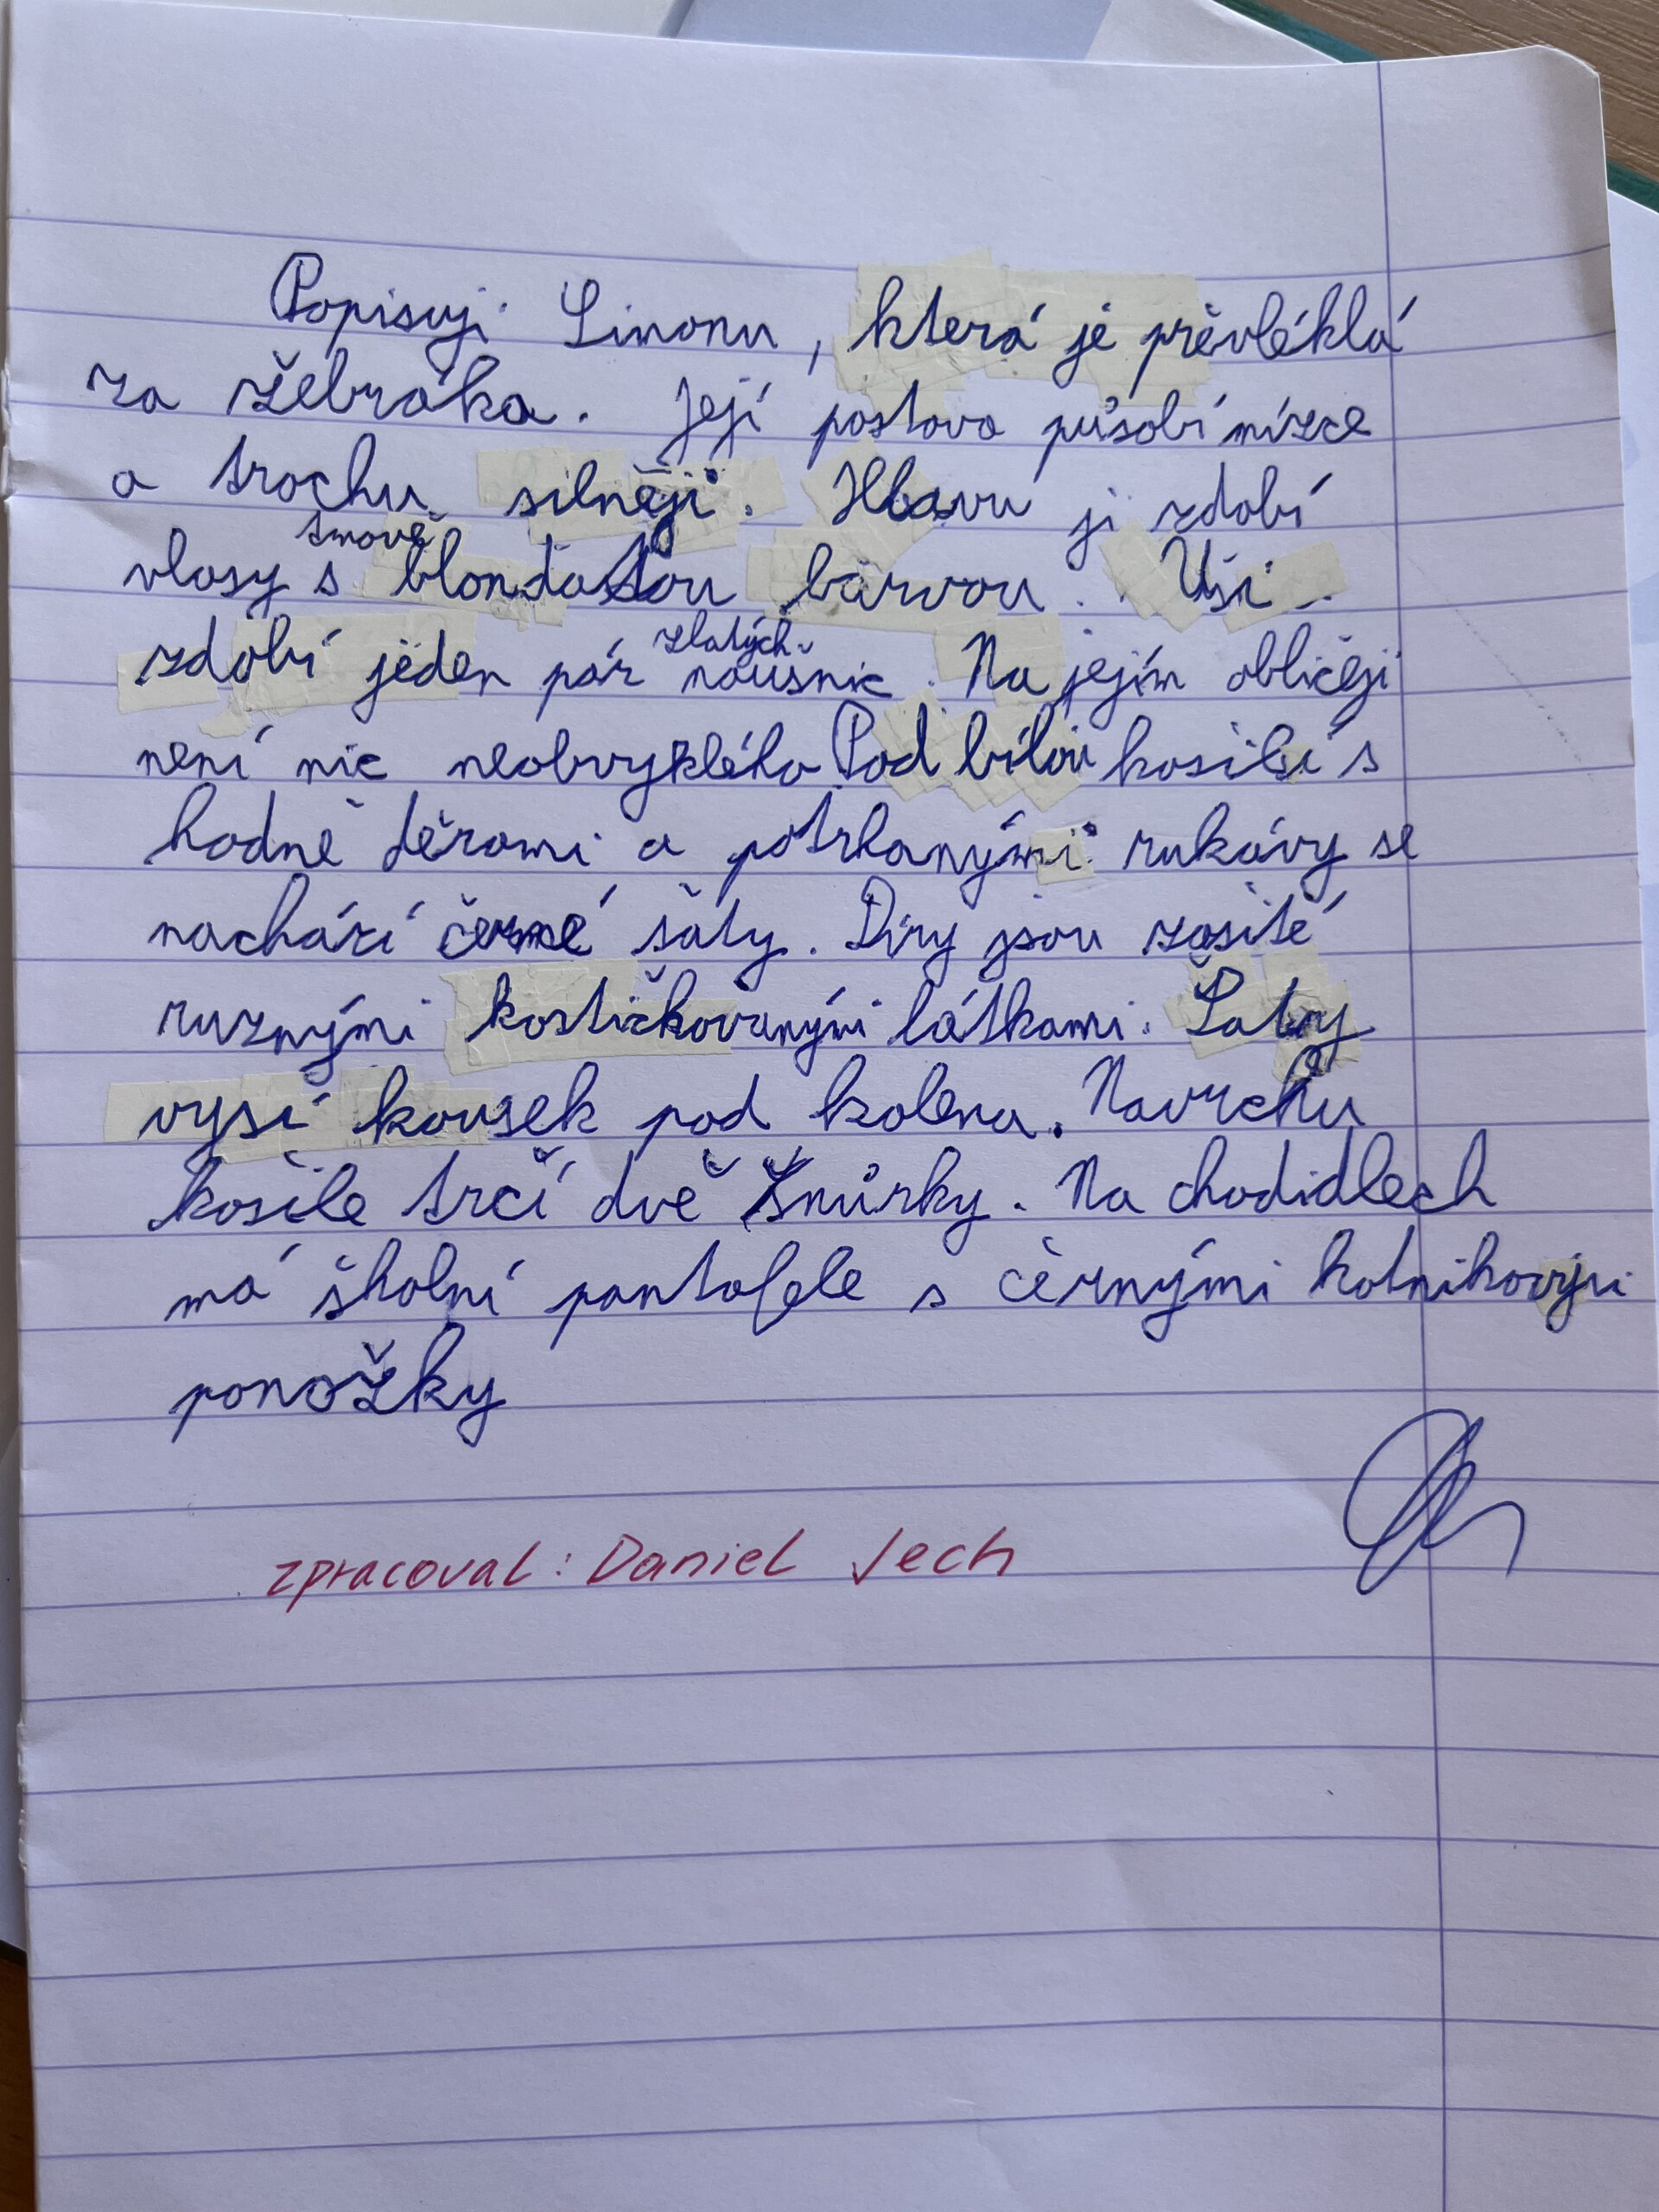 Popisuji Simonu, která je prěvléklá
za žebráka. Její postava působí nízce
a trochu silněji. Hlavu ji zdobí
vlasy s tmavě blonďatou barvou. Uši
zdobí jeden pár zlatých naušnic. Na jejím obličeji
není nic neobvyklého Pod bílou košilí s
hodně děrami a potrhanými rukávy se
nachází černé šaty. Díry jsou zašité
ruznými kostičkovanými látkami. Šaty
vysí kousek pod kolena. Navrchu
košile trčí dvě šnůrky. Na chodidlech
má školní pantofele s černými kotnikovými
ponožky
zpracoval: Daniel Jech